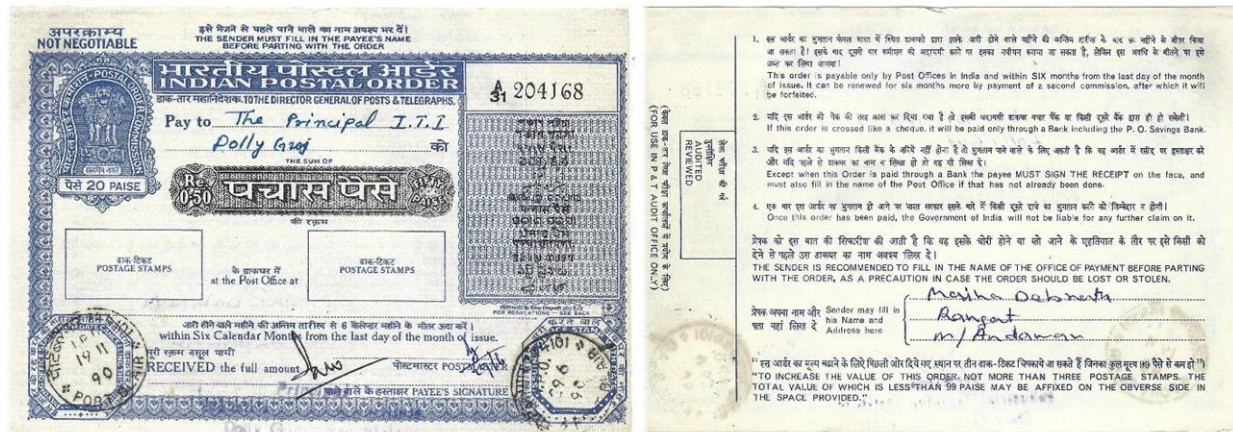 अपरक्राम्य
NOT NEGOTIABLE
इसे भेजने से पहले पाने वाले का नाम अवश्य भर दें।
THE SENDER MUST FILL IN THE PAYEE'S NAME
BEFORE PARTING WITH THE ORDER
भारतीय पोस्टल आर्डर
INDIAN POSTAL ORDER
डाक-तार महानिदेशक. TO THE DIRECTOR GENERAL OF POSTS & TELEGRAPHS.
A/31 204168
Pay to The Principal I.T.I
Dolly Gunj को
THE SUM OF
पैसे 20 PAISE
Re. 0·50 पचास पैसे
की रक़म
डाक-टिकट
POSTAGE STAMPS
के डाकघर में
at the Post Office at
डाक-टिकट
POSTAGE STAMPS
FOR REGULATIONS - SEE BACK
जारी होने वाले महीने की अन्तिम तारीख से 6 कैलेण्डर महीने के भीतर अदा करें।
within Six Calendar Months from the last day of the month of issue.
पूरी रक़म वसूल पायी
RECEIVED the full amount
पोस्टमास्टर POSTMASTER
पाने वाले के हस्ताक्षर PAYEE'S SIGNATURE
19 11
90
PORT BLAIR
(FOR USE IN P & T AUDIT OFFICE ONLY)
AUDITED
REVIEWED
1. इस आर्डर का भुगतान केवल भारत में स्थित डाकघरों द्वारा इसके जारी होने वाले महीने की अन्तिम तारीख के बाद छः महीने के भीतर किया
जा सकता है। इसके बाद दूसरी बार कमीशन की अदायगी करने पर इसका नवीयन कराया जा सकता है, लेकिन इस अवधि के बीतने पर इसे
जब्त कर लिया जाएगा।
This order is payable only by Post Offices in India and within SIX months from the last day of the month
of issue. It can be renewed for six months more by payment of a second commission, after which it will
be forfeited.
2. यदि इस आर्डर को चैक की तरह क्रास कर दिया गया है तो इसकी अदायगी डाकघर बचत बैंक या किसी दूसरे बैंक द्वारा ही हो सकेगी।
If this order is crossed like a cheque, it will be paid only through a Bank including the P. O. Savings Bank.
3. यदि इस आर्डर का भुगतान किसी बैंक के जरिये नहीं होना है तो भुगतान पाने वाले के लिए जरूरी है कि वह आर्डर में रसीद पर हस्ताक्षर करे
और यदि पहले से डाकघर का नाम न लिखा हो तो वह भी लिख दे।
Except when this Order is paid through a Bank the payee MUST SIGN THE RECEIPT on the face, and
must also fill in the name of the Post Office if that has not already been done.
4. एक बार इस आर्डर का भुगतान हो जाने पर भारत सरकार इसके बारे में किसी दूसरे दावे का भुगतान करने की जिम्मेदार न होगी।
Once this order has been paid, the Government of India will not be liable for any further claim on it.
प्रेषक को इस बात की सिफारिश की जाती है कि वह इसके चोरी होने या खो जाने के एहतियात के तौर पर इसे किसी को
देने से पहले उस डाकघर का नाम अवश्य लिख दे।
THE SENDER IS RECOMMENDED TO FILL IN THE NAME OF THE OFFICE OF PAYMENT BEFORE PARTING
WITH THE ORDER, AS A PRECAUTION IN CASE THE ORDER SHOULD BE LOST OR STOLEN.
प्रेषक अपना नाम और
पता यहाँ लिख दे
Sender may fill in
his Name and
Address here
Debnath
Rangat
m/Andaman
"इस आर्डर का मूल्य बढ़ाने के लिए पिछली ओर दिये गए स्थान पर तीन डाक-टिकट चिपकाये जा सकते हैं जिनका कुल मूल्य 99 पैसे से कम हो"।
"TO INCREASE THE VALUE OF THIS ORDER, NOT MORE THAN THREE POSTAGE STAMPS. THE
TOTAL VALUE OF WHICH IS LESS THAN 99 PAISE MAY BE AFFIXED ON THE OBVERSE SIDE IN
THE SPACE PROVIDED."